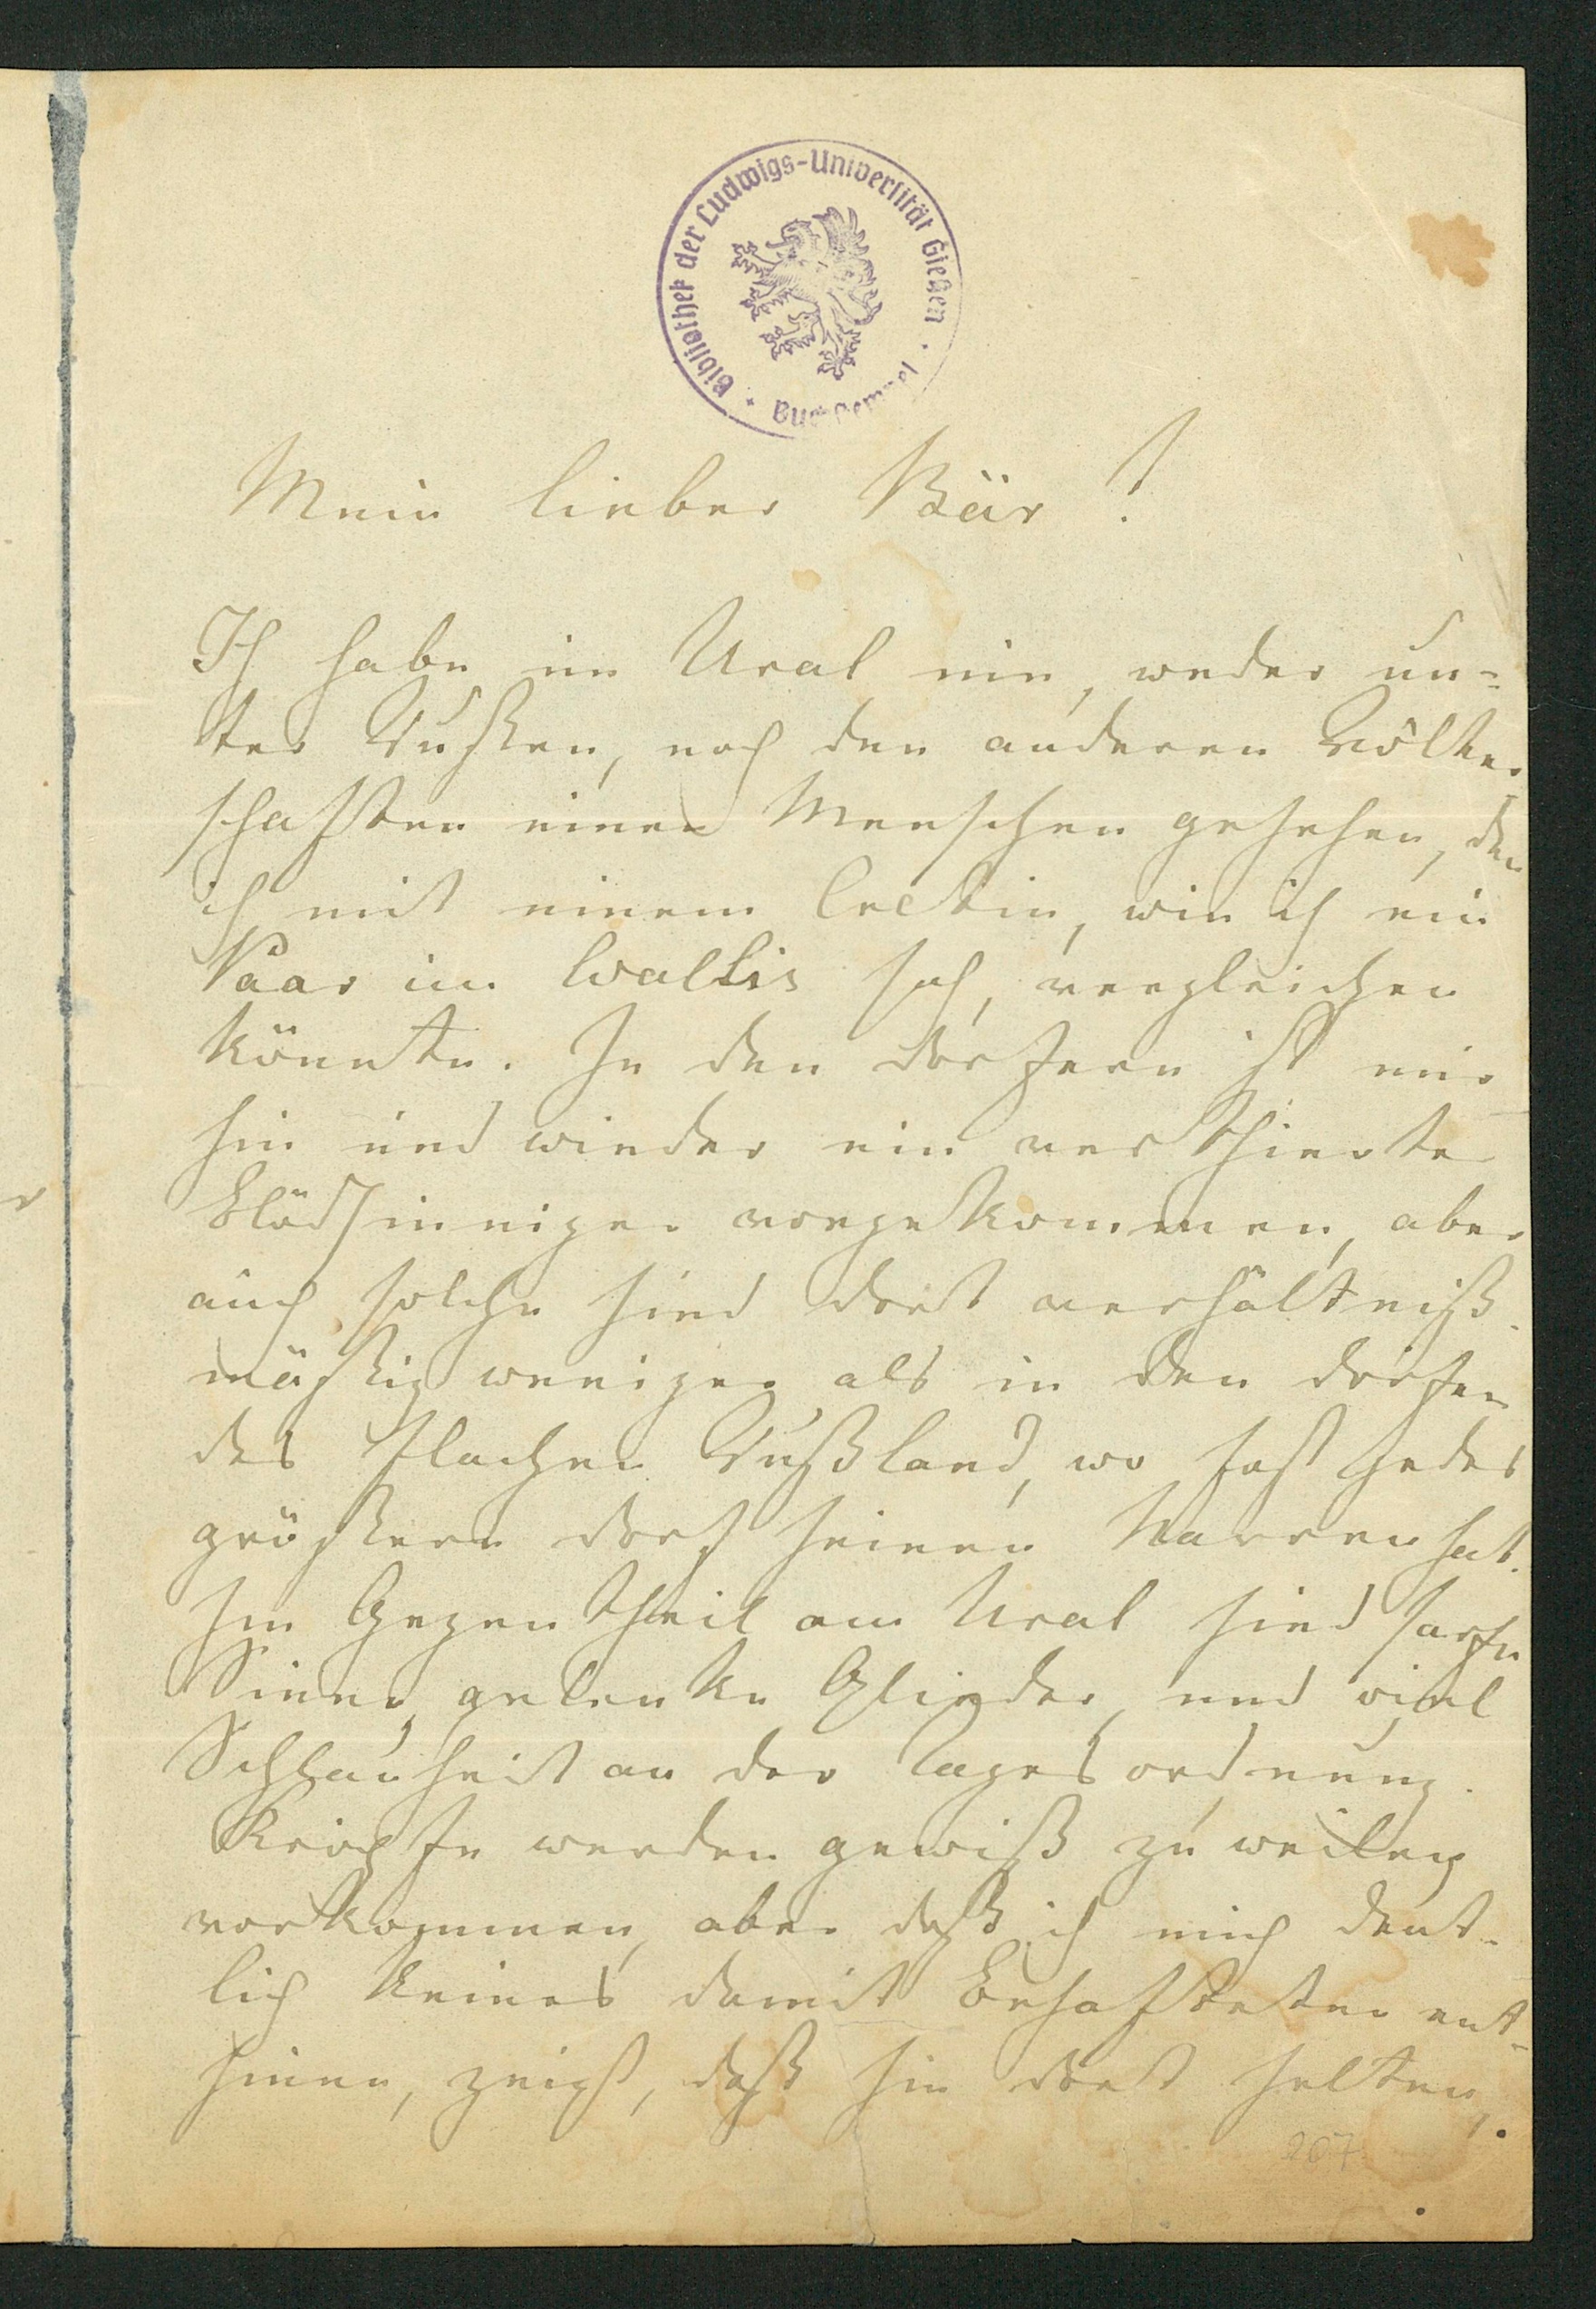 Bibliothek der Ludwigs-Universität Gießen
Mein lieber Bär!
Ich habe im Ural nie, weder un-
ter Rußen, noch den anderen Völker
schaften einen Menschen gesehen, den
ich mit einem Cretin, wie ich ein
Paar im Wallis sah, vergleichen
könnte. In den Dörfern ist mir
hin und wieder ein verthierter
Blödsinniger vorgekommen, aber
auch solche sind dort verhältniß-
mäßig weniger als in den Dörfern
des flachen Rußland, wo fast jedes
größere Dorf seinen Narren hat.
Im Gegentheil am Ural sind scharfe
Sinne, gelenke Glieder, und viel
Schlauheit an der Tagesordnung.
Kröpfe werden gewiß zuweilen
vorkommen, aber daß ich mich deut-
lich keines damit Behafteten ent-
sinne, zeigt, daß sie dort selten,
207